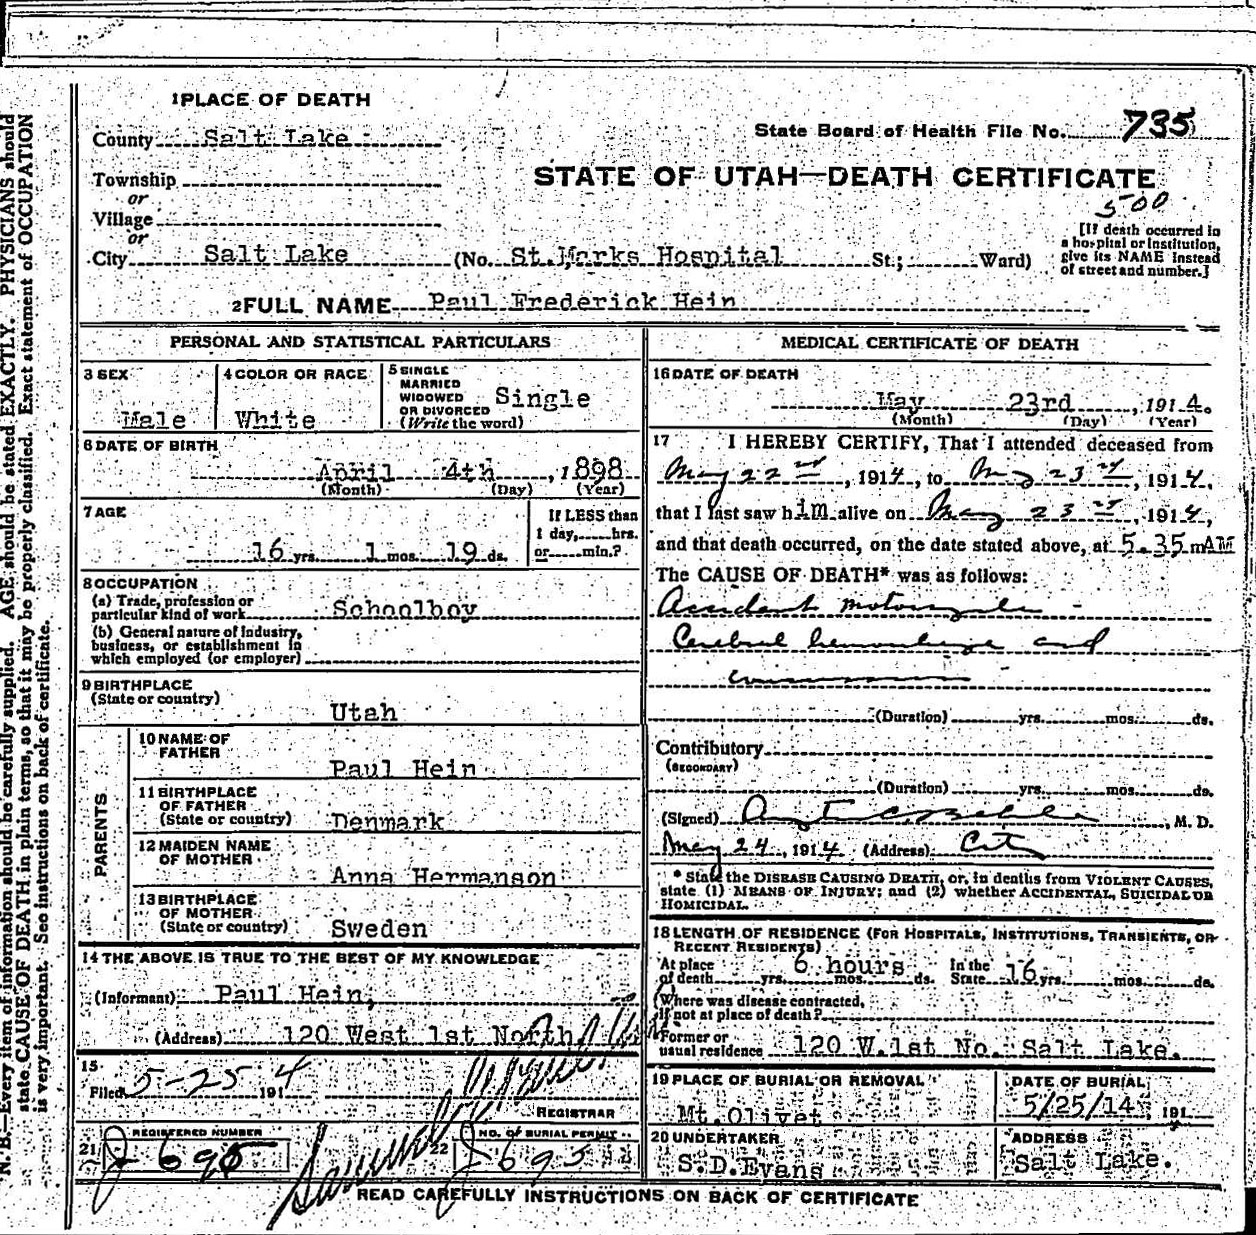 1 PLACE OF DEATH
County Salt Lake
State Board of Health File No. 735
Township
or
STATE OF UTAH—DEATH CERTIFICATE
500
Village
or
City Salt Lake (No. St. Marks Hospital St.; Ward)
[If death occurred in a hospital or institution, give its NAME instead of street and number.]
2 FULL NAME Paul Frederick Hein
PERSONAL AND STATISTICAL PARTICULARS
3 SEX
Male
4 COLOR OR RACE
White
5 SINGLE
MARRIED
WIDOWED
OR DIVORCED
(Write the word)
Single
6 DATE OF BIRTH
April 4th, 1898
(Month) (Day) (Year)
7 AGE
16 yrs. 1 mos. 19 ds.
If LESS than
1 day, hrs.
or min.?
8 OCCUPATION
(a) Trade, profession or
particular kind of work Schoolboy
(b) General nature of industry,
business, or establishment in
which employed (or employer)
9 BIRTHPLACE
(State or country)
Utah
PARENTS
10 NAME OF
FATHER
Paul Hein
11 BIRTHPLACE
OF FATHER
(State or country) Denmark
12 MAIDEN NAME
OF MOTHER
Anna Hermanson
13 BIRTHPLACE
OF MOTHER
(State or country) Sweden
14 THE ABOVE IS TRUE TO THE BEST OF MY KNOWLEDGE
(Informant) Paul Hein,
(Address) 120 West 1st North
15
Filed 5-25 1914
REGISTRAR
21 REGISTERED NUMBER
J 695
22 NO. OF BURIAL PERMIT
J 695
MEDICAL CERTIFICATE OF DEATH
16 DATE OF DEATH
May 23rd, 1914.
(Month) (Day) (Year)
17 I HEREBY CERTIFY, That I attended deceased from
May 22nd, 1914, to May 23rd, 1914,
that I last saw him alive on May 23rd, 1914,
and that death occurred, on the date stated above, at 5.35 m AM
The CAUSE OF DEATH* was as follows:
Accident motorcycle -
Cerebral hemorrhage and
(Duration) yrs. mos. ds.
Contributory
(SECONDARY)
(Duration) yrs. mos. ds.
(Signed) , M. D.
May 24, 1914 (Address) City
* State the DISEASE CAUSING DEATH, or, in deaths from VIOLENT CAUSES,
state (1) MEANS OF INJURY; and (2) whether ACCIDENTAL, SUICIDAL OR
HOMICIDAL.
18 LENGTH OF RESIDENCE (FOR HOSPITALS, INSTITUTIONS, TRANSIENTS, OR
RECENT RESIDENTS)
At place
of death yrs. 6 hours ds. In the State 16 yrs. mos. ds.
Where was disease contracted,
if not at place of death?
Former or
usual residence 120 W.1st No. Salt Lake.
19 PLACE OF BURIAL OR REMOVAL
Mt. Olivet
DATE OF BURIAL
5/25/14 191
20 UNDERTAKER
S.D.Evans
ADDRESS
Salt Lake.
READ CAREFULLY INSTRUCTIONS ON BACK OF CERTIFICATE
N. B.—Every item of information should be carefully supplied. AGE should be stated EXACTLY. PHYSICIANS should
state CAUSE OF DEATH in plain terms, so that it may be properly classified. Exact statement of OCCUPATION
is very important. See instructions on back of certificate.